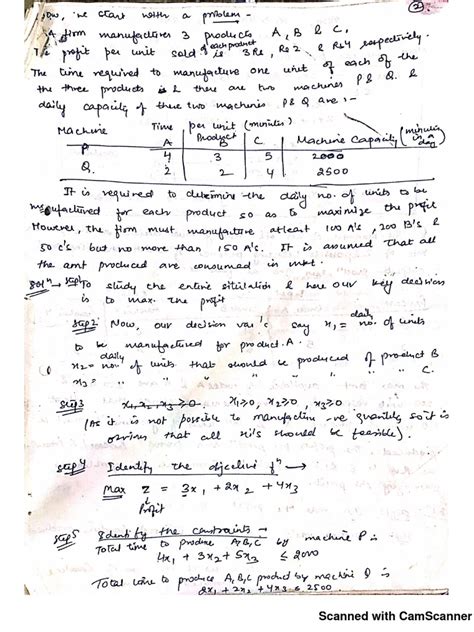 Now, we start with a problem -
A firm manufactures 3 products A, B & C,
The profit per unit sold of each product is 3 Rs, Rs 2 & Rs 4 respectively.
The time required to manufacture one unit of each of the
the three products & there are two machines P & Q. &
daily capacity of these two machines P & Q are :-
Machine Time per unit (minutes) Machine Capacity (minutes in a day)
Product
A B C
P 4 3 5 2000
Q. 2 2 4 2500
It is required to determine the daily no. of units to be
manufactured for each product so as to maximize the profit
However, the firm must manufacture atleast 100 A's, 200 B's &
50 C's but no more than 150 A's. It is assumed that all
the amt produced are consumed in mkt.
Solⁿ → Step 1 To study the entire situation & here our key decision
is to max. the profit
Step 2 Now, our decision var's say x₁ = daily no. of units
to be manufactured for product. A.
x₂ = daily no. of units that should be produced of product B
x₃ = " " " " " " " C.
Step 3 x₁, x₂, x₃ ≥ 0 x₁≥0, x₂≥0, x₃≥0
(As it is not possible to manufacture -ve quantity so it is
obvious that all xi's should be feasible).
Step 4 Identify the objective fⁿ →
Max Z = 3x₁ + 2x₂ + 4x₃
↓
Profit
Step 5 Identify the constraints -
Total time to produce A, B, C by machine P is
4x₁ + 3x₂ + 5x₃ ≤ 2000
Total time to produce A, B, C product by machine Q is
2x₁ + 2x₂ + 4x₃ ≤ 2500.
Scanned with CamScanner